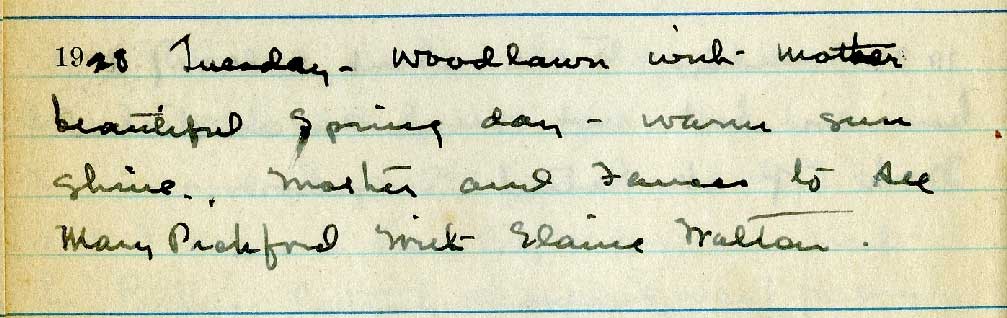 1928 Tuesday - Woodlawn with Mother
beautiful Spring day - warm sun
shine. Mother and Frances to see
Mary Pickford with Elaine Walton.